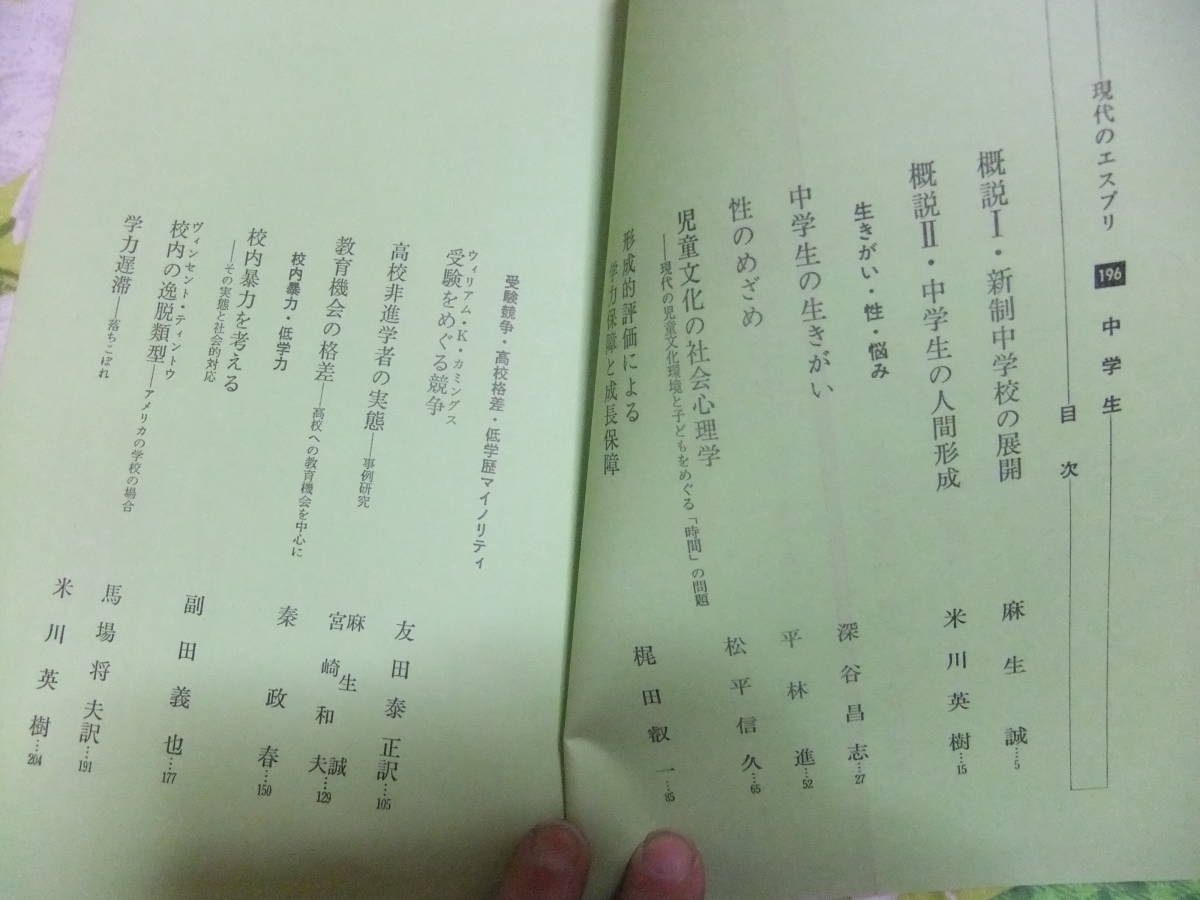 現代のエスプリ 196 中学生
目次
概説Ⅰ・新制中学校の展開 麻生誠…5
概説Ⅱ・中学生の人間形成 米川英樹…15
生きがい・性・悩み
中学生の生きがい 深谷昌志…27
性のめざめ 平林進…52
児童文化の社会心理学 松平信久…65
――現代の児童文化環境と子どもをめぐる「時間」の問題
形成的評価による
学力保障と成長保障 梶田叡一…85
受験競争・高校格差・低学歴マイノリティ
ウィリアム・K・カミングス
受験をめぐる競争 友田泰正訳…105
高校非進学者の実態――事例研究 麻生誠
宮崎和夫…129
教育機会の格差――高校への教育機会を中心に 秦政春…150
校内暴力・低学力
校内暴力を考える 副田義也…177
――その実態と社会的対応
ヴィンセント・ティントウ
校内の逸脱類型――アメリカの学校の場合 馬場将夫訳…191
学力遅滞――落ちこぼれ 米川英樹…204